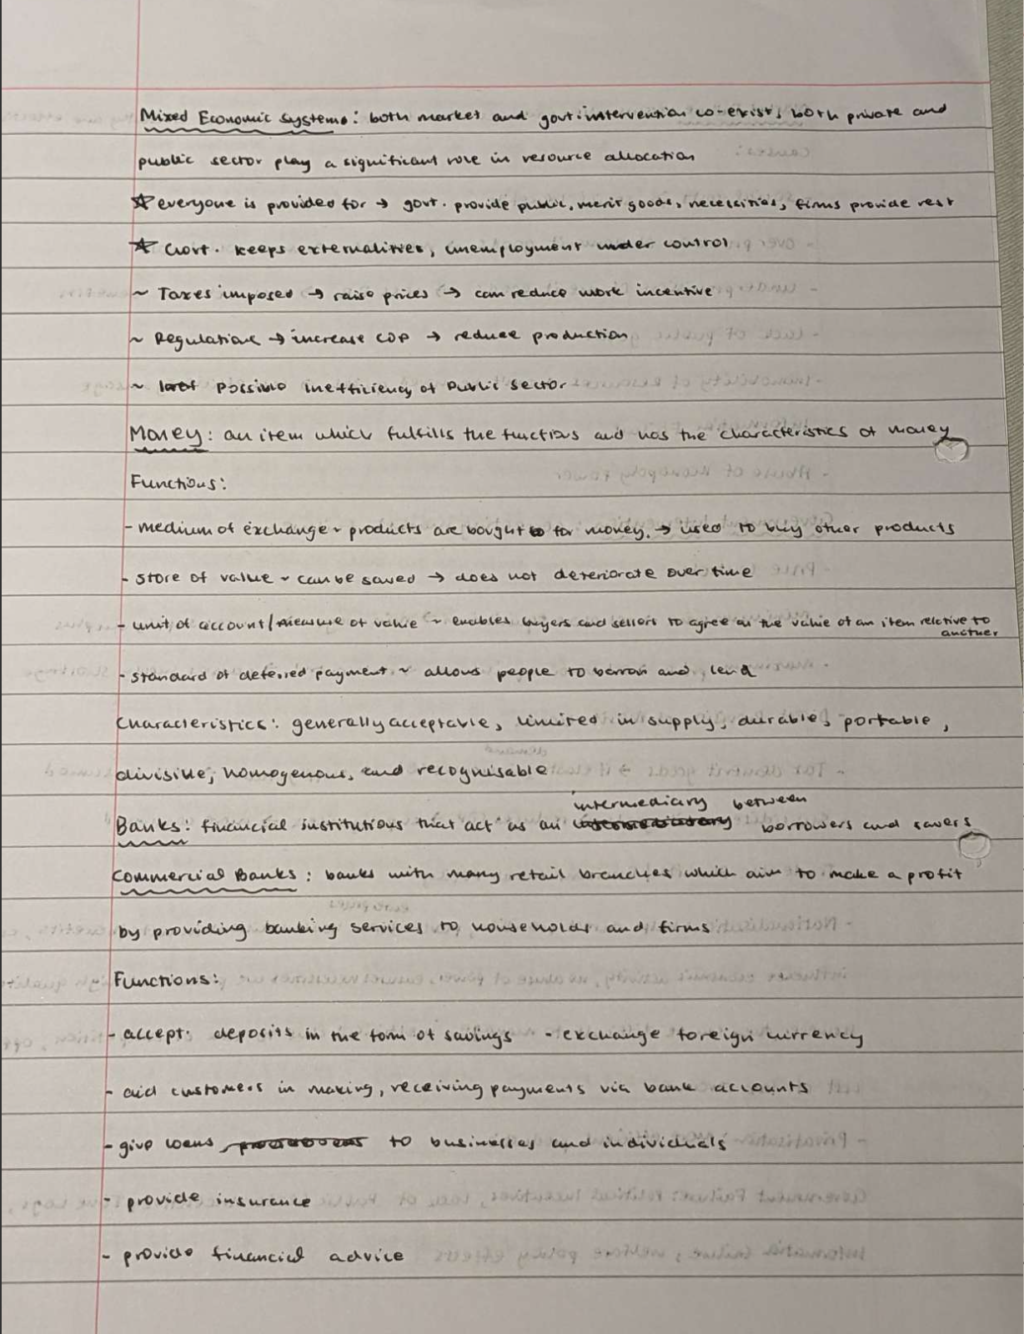 Mixed Economic Systems: both market and govt. intervention co-exist, both private and
public sector play a significant role in resource allocation
☆ everyone is provided for → govt. provide public, merit goods, necessities, firms provide rest
☆ Govt. keeps externalities, unemployment under control
~ Taxes imposed → raise prices → can reduce work incentive
~ Regulations → increase COP → reduce production
~ Possible inefficiency of Public sector
Money: an item which fulfills the functions and has the characteristics of money
Functions:
- medium of exchange ~ products are bought for money. → used to buy other products
- store of value ~ can be saved → does not deteriorate over time
- unit of account/measure of value ~ enables buyers and sellers to agree on the value of an item relative to
another
- standard of deferred payment ~ allows people to borrow and lend
Characteristics: generally acceptable, limited in supply, durable, portable,
divisible, homogenous, and recognisable
intermediary between
Banks: financial institutions that act as an borrowers and savers
Commercial Banks: banks with many retail branches which aim to make a profit
by providing banking services to households and firms
Functions:
- accept deposits in the form of savings - exchange foreign currency
- aid customers in making, receiving payments via bank accounts
- give loans to businesses and individuals
- provide insurance
- provide financial advice